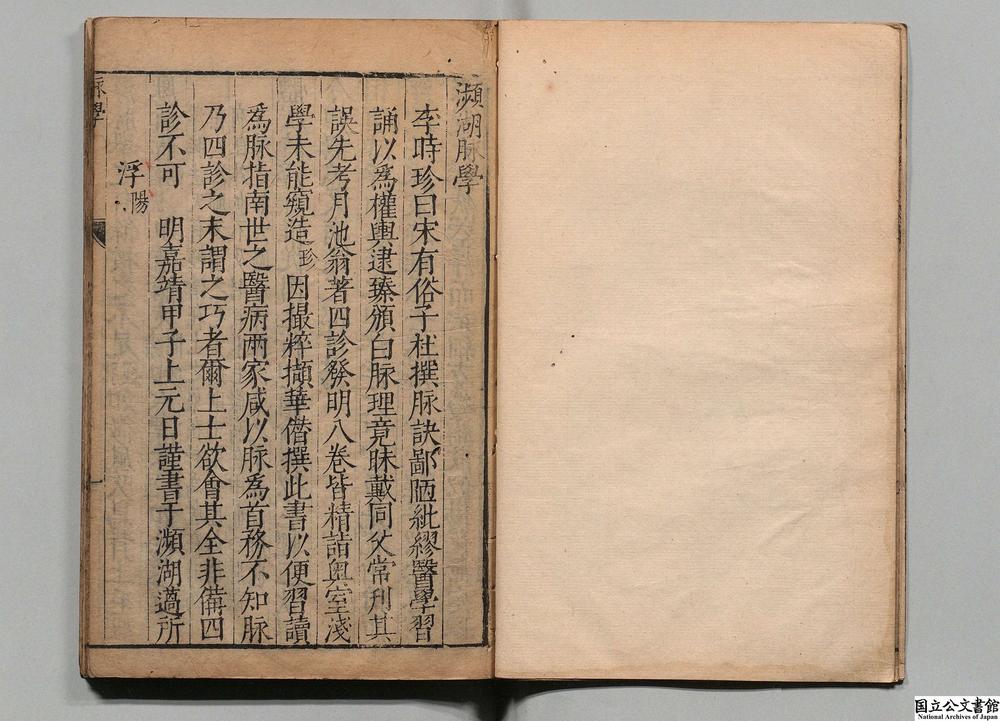 瀕湖脉學
李時珍曰宋有俗子杜撰脉訣鄙陋紕繆醫學習
誦以爲權輿逮臻頒白脉理竟昧戴同父常刋其
誤先考月池翁著四診發明八卷皆精詣奧室淺
學未能窺造珍因撮粹擷華僣撰此書以便習讀
爲脉指南世之醫病兩家咸以脉爲首務不知脉
乃四診之末謂之巧者爾上士欲會其全非備四
診不可　明嘉靖甲子上元日謹書于瀕湖薖所
浮陽
脉學
一
国立公文書館
National Archives of Japan